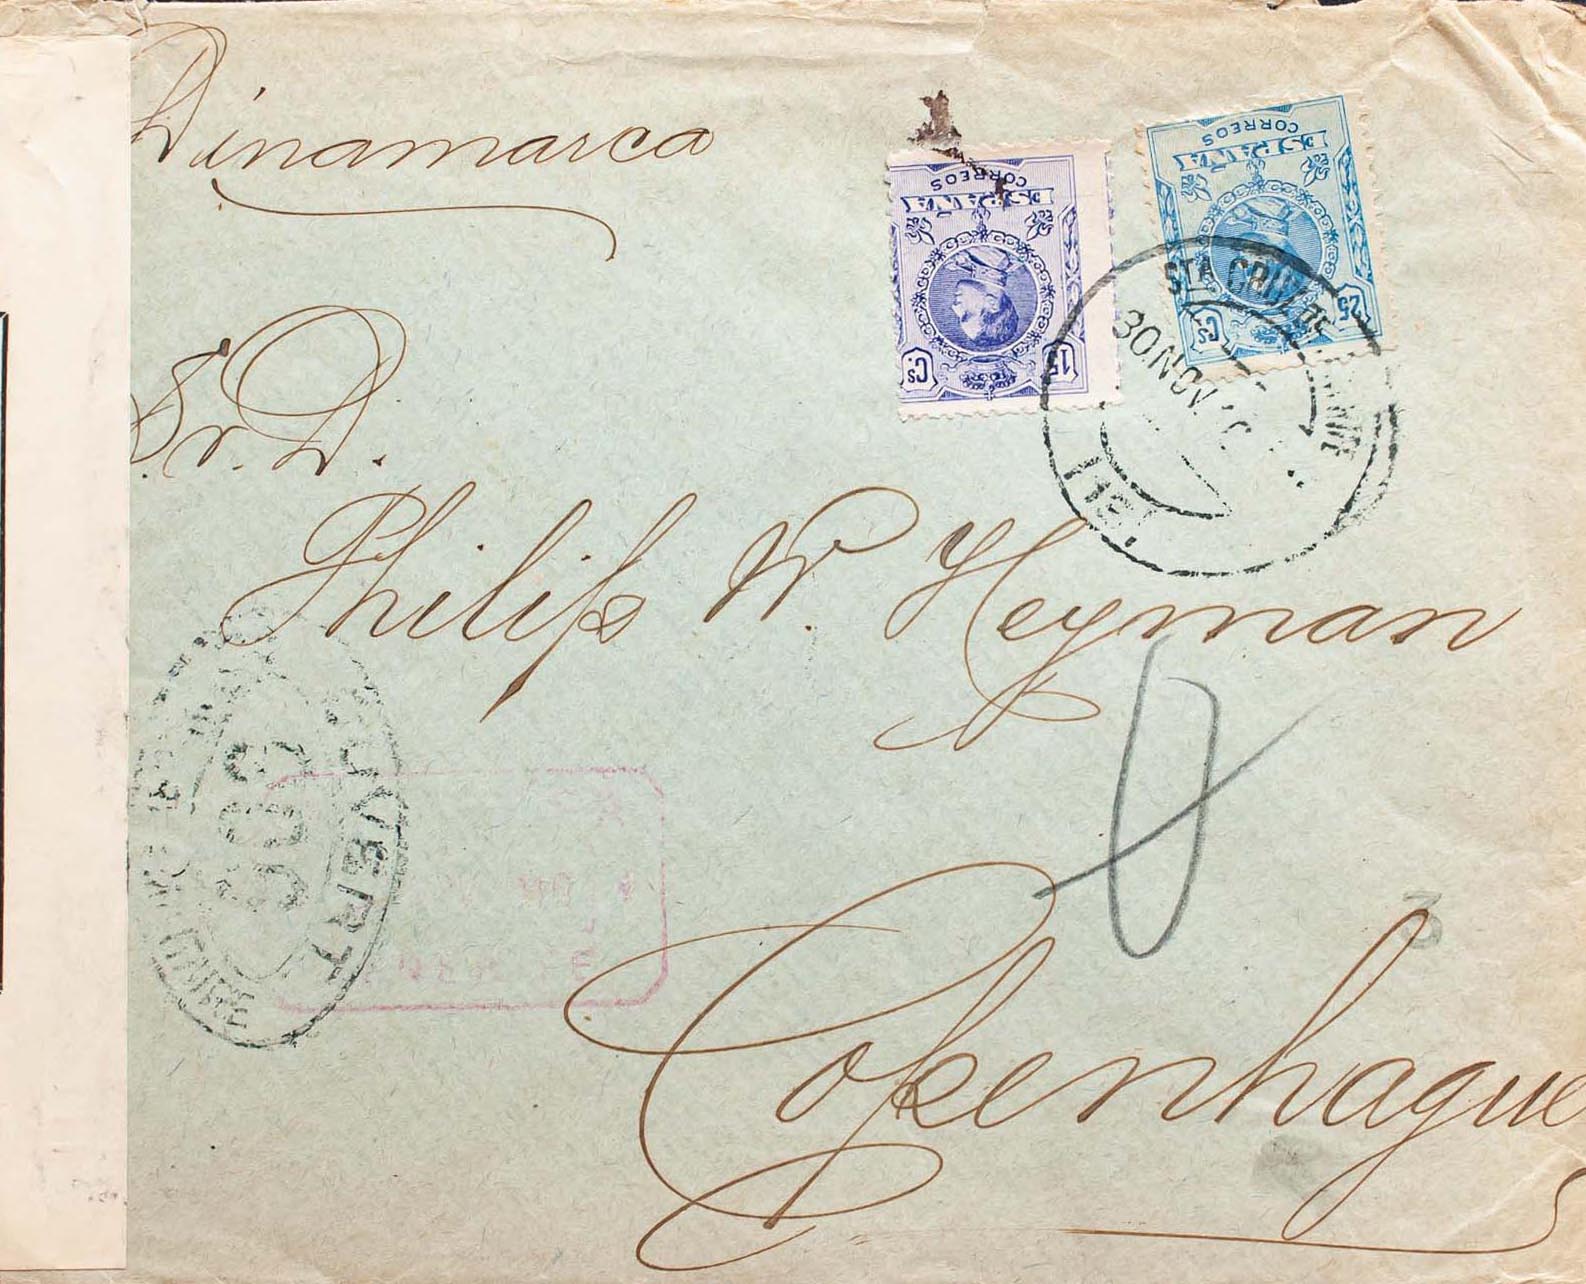 Dinamarca
CORREOS
ESPAÑA
15 Cs.
CORREOS
ESPAÑA
25 Cs
STA CRUZ DE
30 NOV
Sr. D.
Philip W. Heyman
OUVERT
MILITAIRE
3
Copenhague